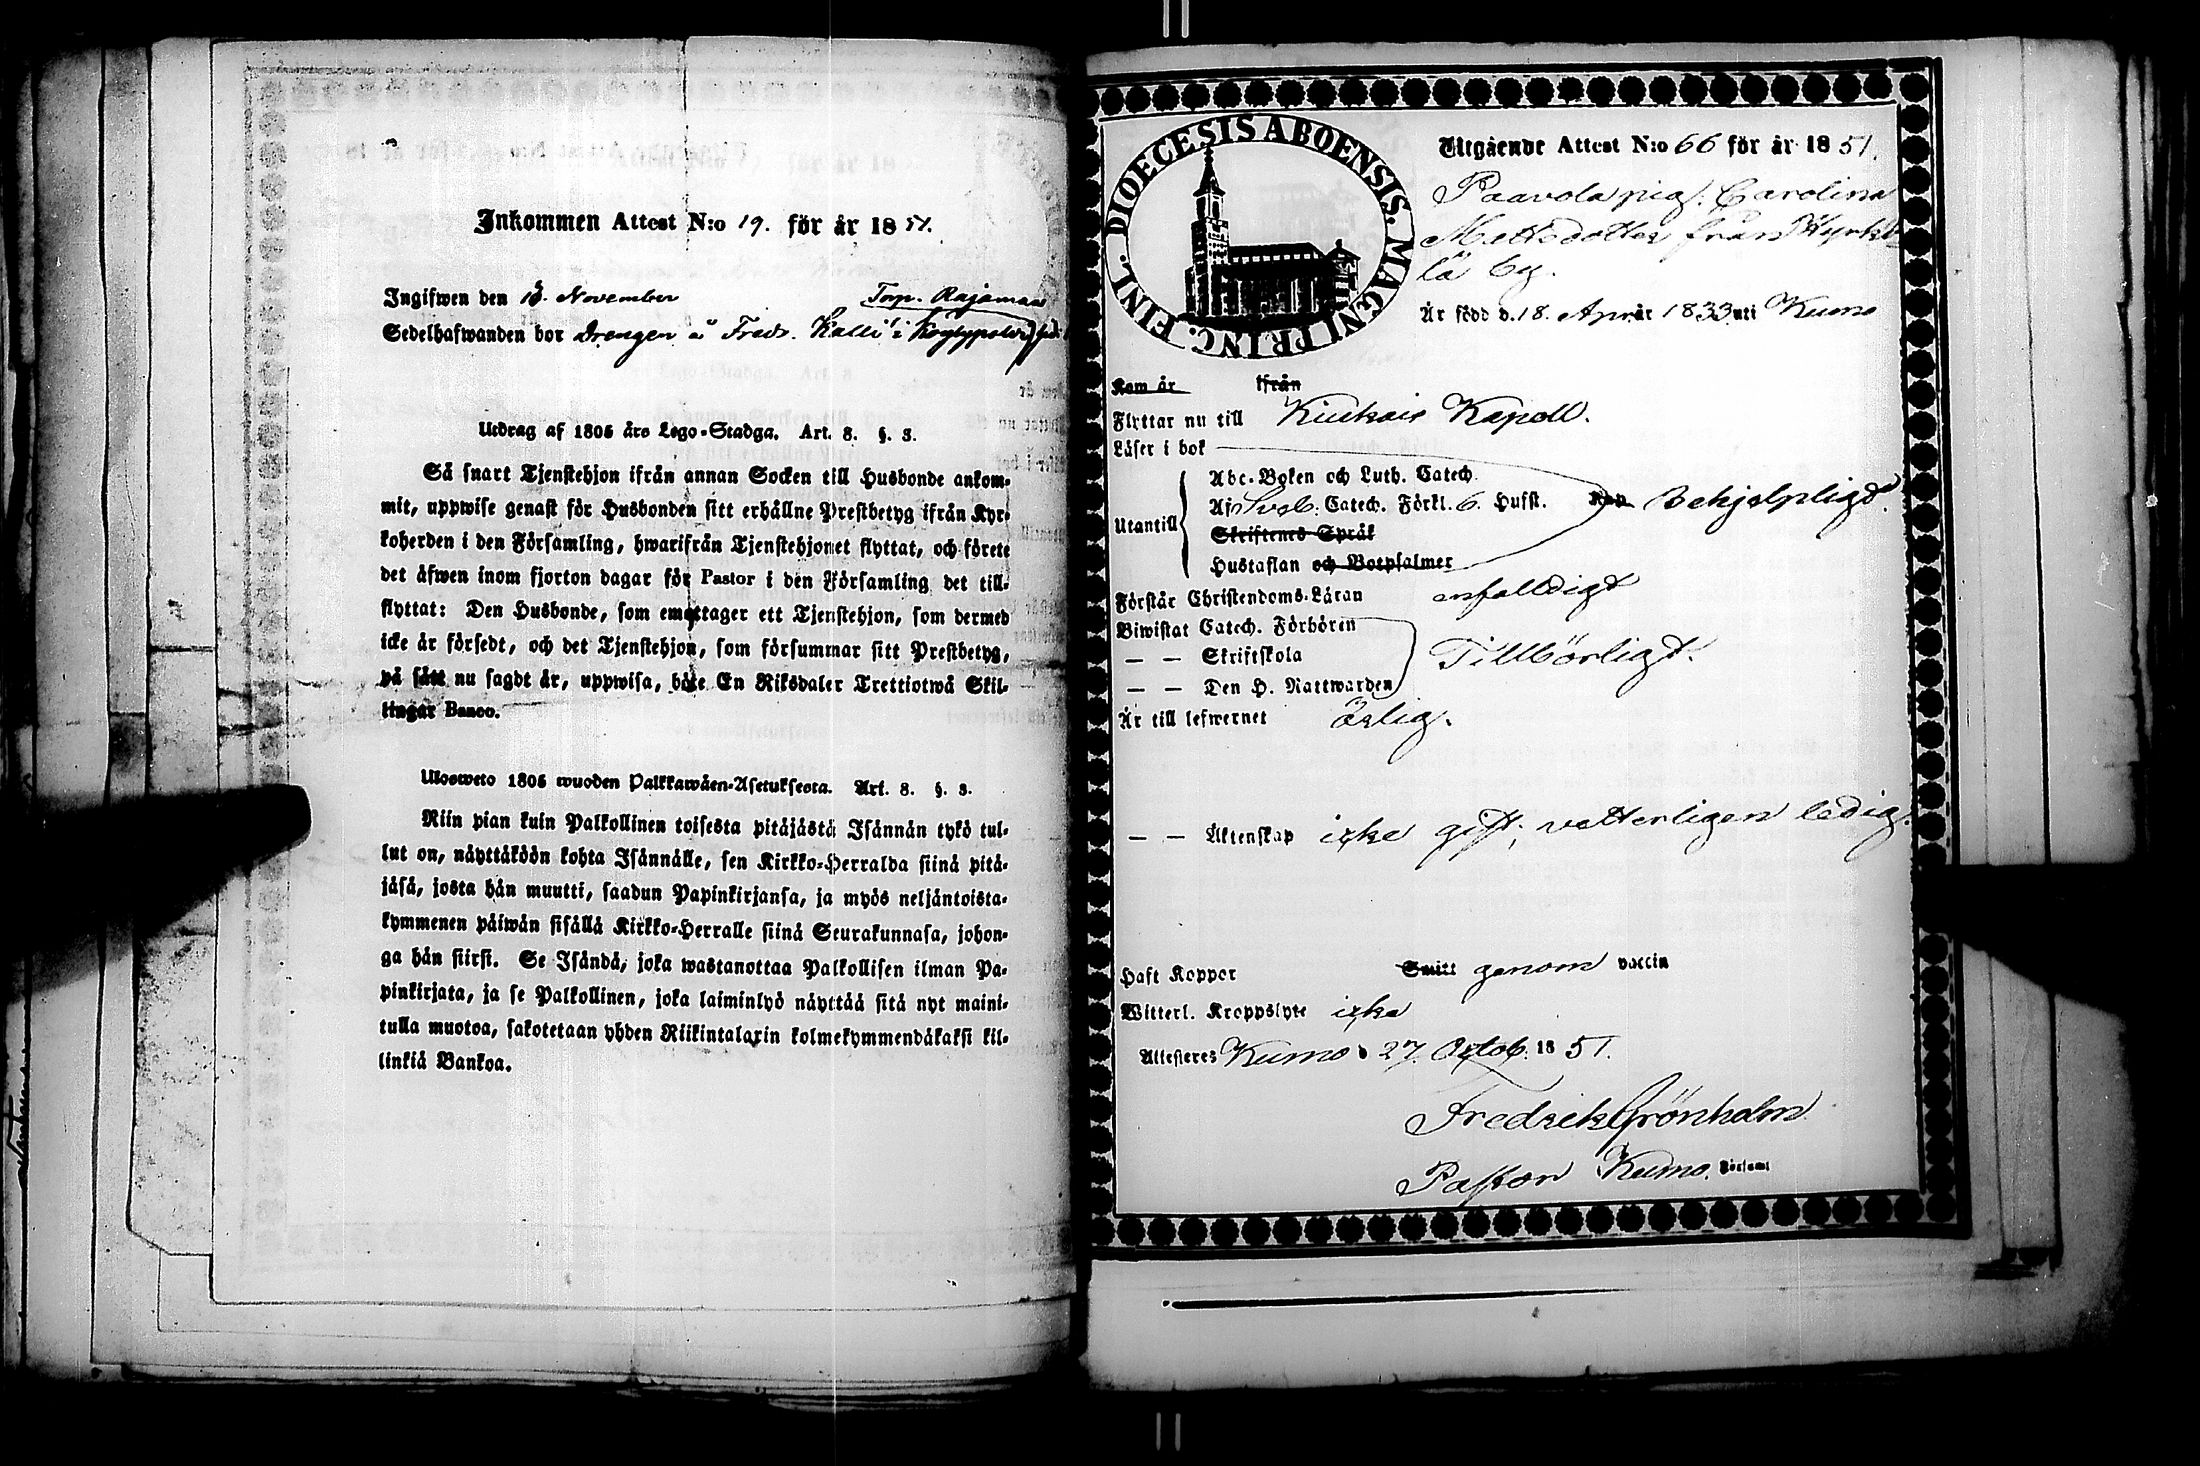 Inkommen Attest N:o 19. för år 1851.
Ingifwen den 15. November
Torp. Rajamaa
Sedelhafwanden bor Drengen å Freds. Kalli i
Utdrag af 1805 års Lego-Stadga. Art. 8. §. 3.
Så snart Tjenstehjon ifrån annan Socken till Husbonde ankom-
mit, uppwise genast för Husbonden sitt erhållne Prestbetyg ifrån Kyr-
koherden i den Församling, hwarifrån Tjenstehjonet flyttat, och förete
det äfwen inom fjorton dagar för Pastor i den Församling det till-
flyttat: Den Husbonde, som emottager ett Tjenstehjon, som dermed
icke är försedt, och det Tjenstehjon, som försummar sitt Prestbetyg,
på sätt nu sagdt är, uppwisa, böte En Riksdaler Trettiotwå Skil-
lingar Banco.
Ulosweto 1805 wuoden Palkkawäen-Asetuksesta. Art. 8. §. 3.
Niin pian kuin Palkollinen toisesta pitäjästä Isännän tykö tul-
lut on, näyttäköön kohta Isännälle, sen Kirkko-Herralda siinä pitä-
jäsä, josta hän muutti, saadun Papinkirjansa, ja myös neljäntoista-
kymmenen päiwän sisällä Kirkko-Herralle siinä Seurakunnasa, johon-
ga hän siirsi. Se Isändä, joka wastanottaa Palkollisen ilman Pa-
pinkirjata, ja se Palkollinen, joka laiminlyö näyttää sitä nyt maini-
tulla muotoa, sakotetaan yhden Riikintalarin kolmekymmendäkaksi kil-
linkiä Bankoa.
DIOECESIS ABOENSIS. MAGNI PRINC. FINL.
Utgående Attest N:o 66 för år 1851.
Paavola pig. Carolina
Mattsdotter från Kyrkby
lä by.
Är född d. 18. Apr. år 1833 uti Kumo
Kom år ifrån
Flyttar nu till Kiukais Kapell.
Läser i bok
Utantill
Abc-Boken och Luth. Catech.
Af Sveb. Catech. Förkl. 6. Hufst. behjelpligt.
Skriftenes Språk
Hustaflan och Botpsalmer
Förstår Christendoms-Läran enfaldigt
Biwistat Catech. Förhören
— — Skriftskola Tillbörligt.
— — Den H. Nattwarden
Är till lefwernet ärlig.
— — Äktenskap icke gift, vetterligen ledig.
Haft Koppor Smitt genom vaccin
Witterl. Kroppslyte icke
Attesteres Kumo d 27. Octob. 1851.
Fredrik Grönholm
Pastor Kumo. Församl